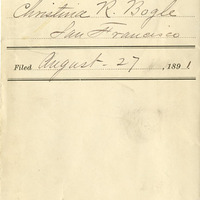 Christina R. Bogle
San Francisco
Filed August - 27, 1891